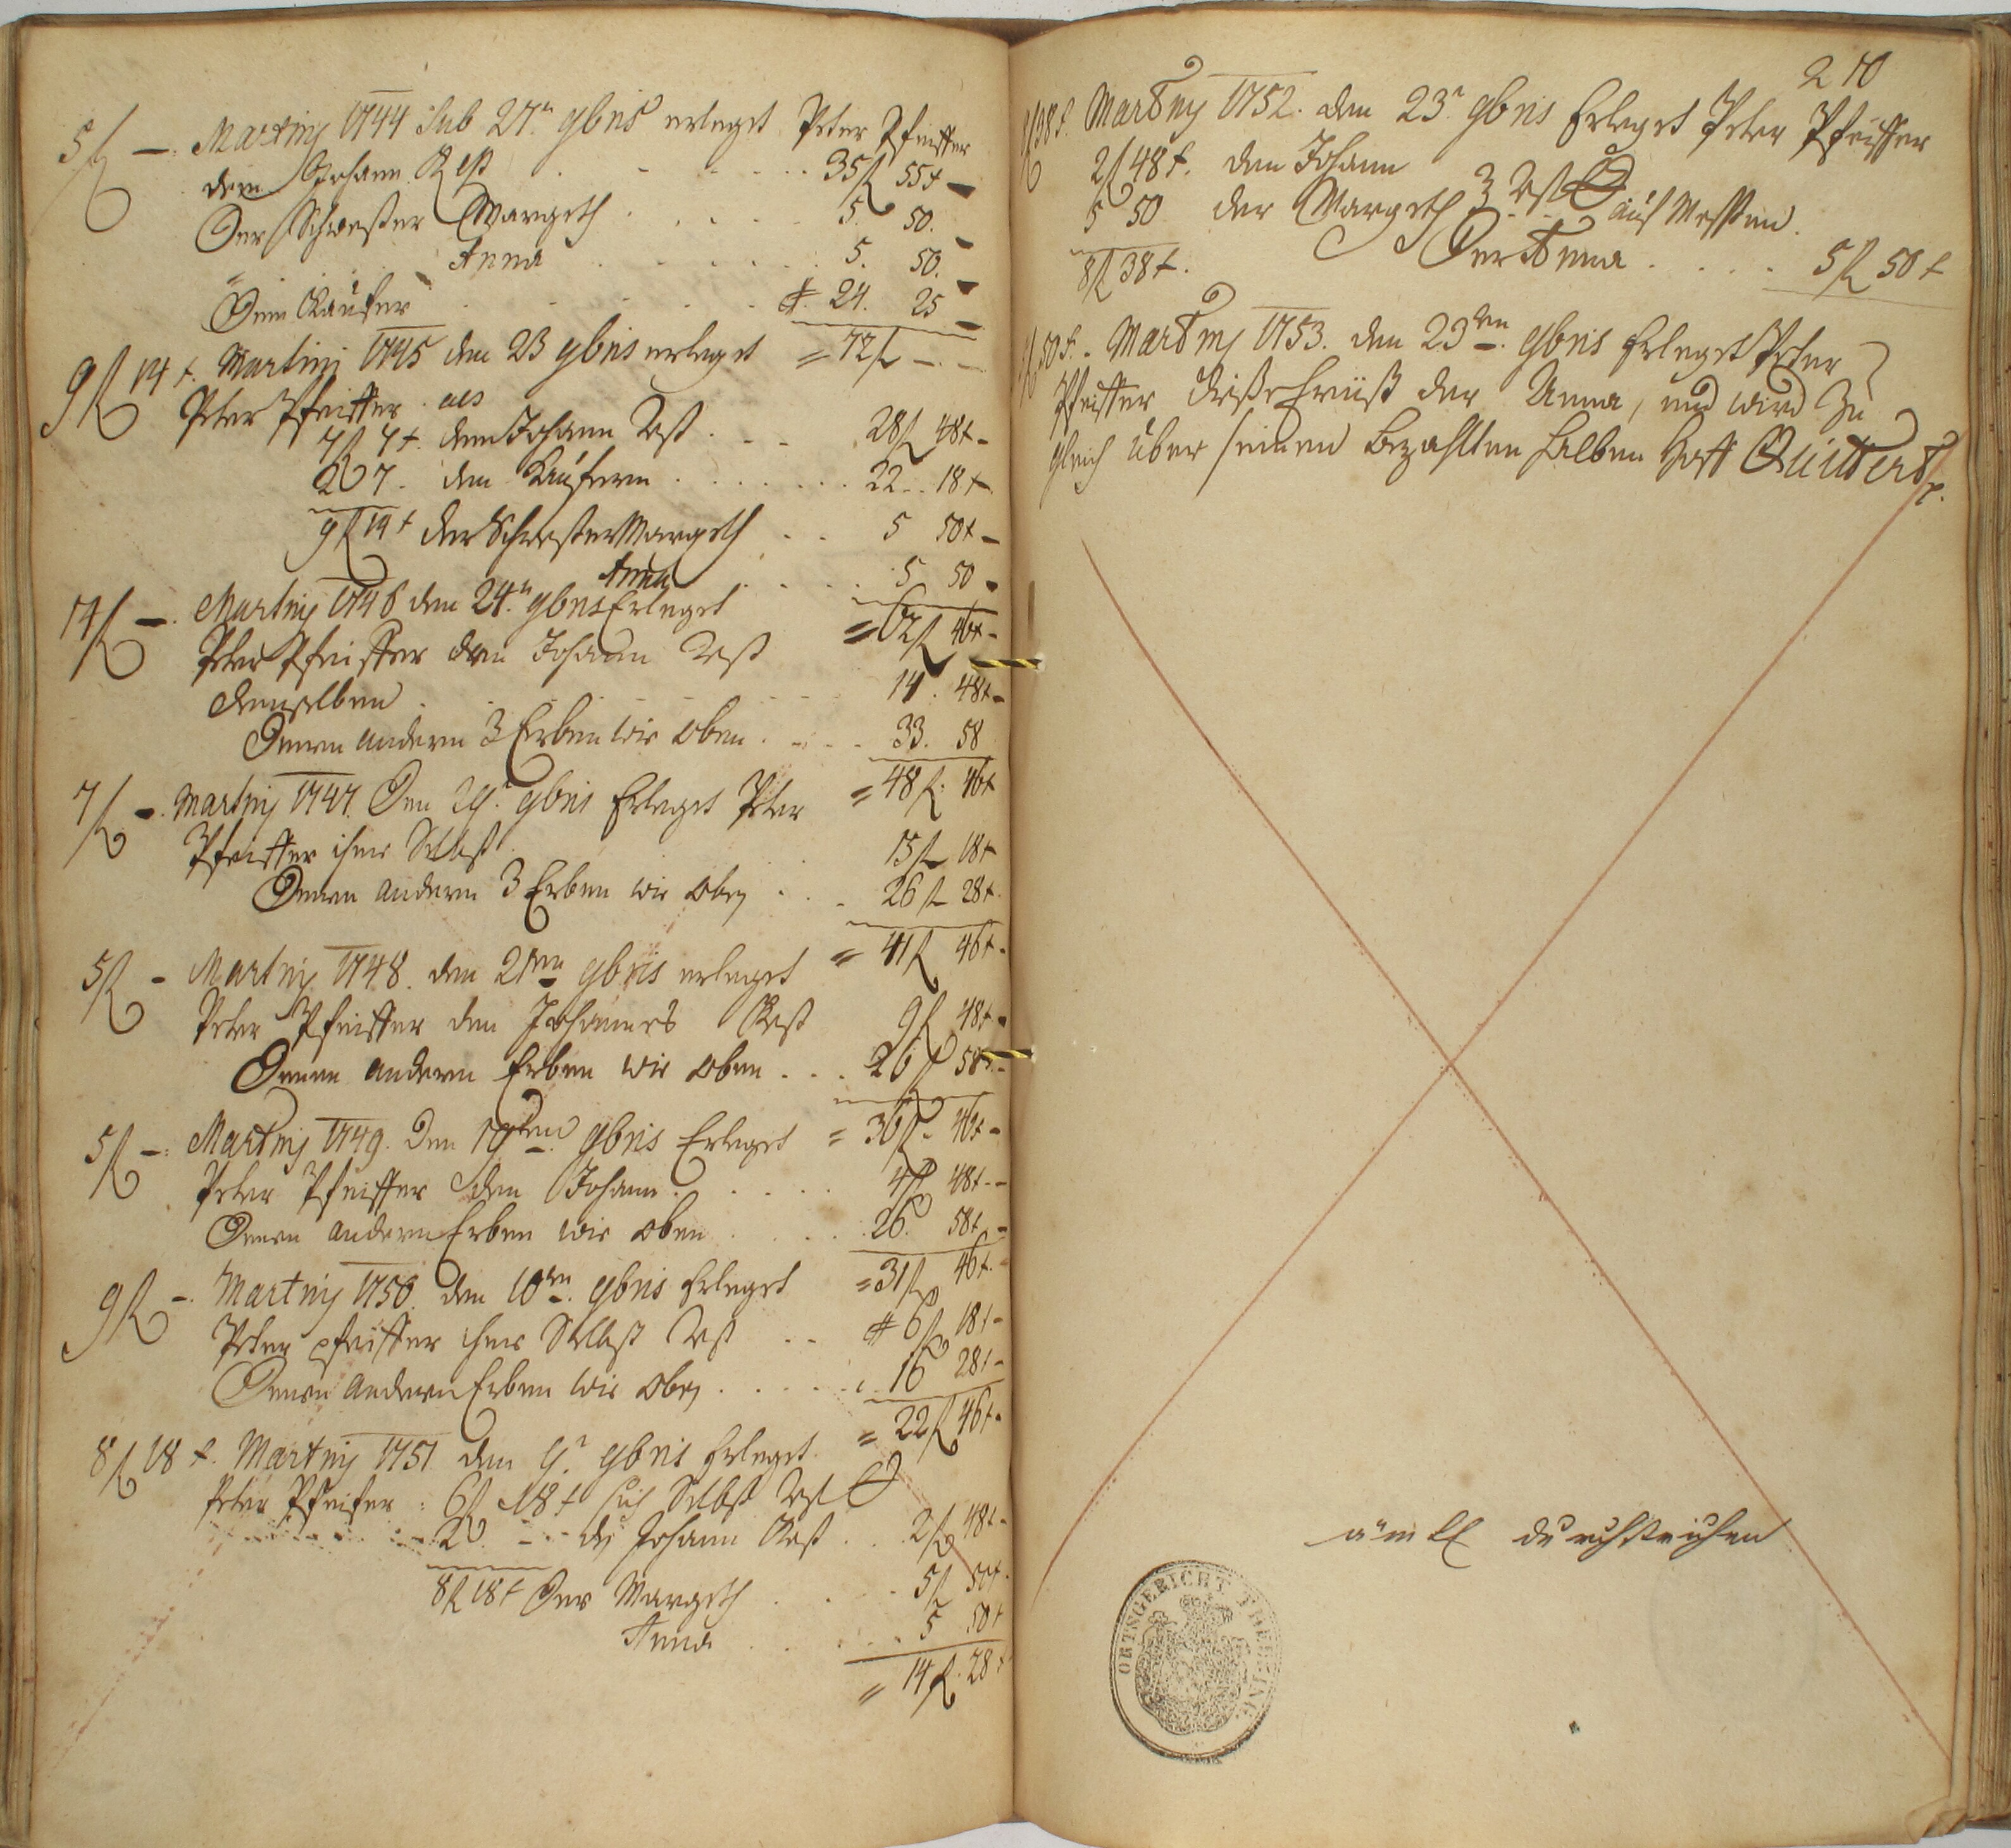 5 fl — Martiny 1744 Sub 27n 9bris erleget Peter Pfeiffer
dem Johann Rest . . . 35 fl 55 x
Der Schwester Margreth . . . 5. 50.
Anna . . . 5. 50.
Dem Käufer . . . 24. 25
= 72 fl —
9 fl 14 x. Martini 1745 den 23 9bris erleget
Peter Pfeiffer als
7 fl 7 x. dem Johann Rest . . . 28 fl 48 x
2 7. den Käufern . . . 22. 18 x
9 fl 14 x der Schwester Margreth . . 5 50 x
Anna . . . 5 50
= 62 fl 46 x
14 fl — Martiny 1746 den 24n 9bris Erleget
Peter Pfeiffer dem Johann Rest
demselben . . . 14. 48 x
Denen andern 3 Erben wie oben . . . 33. 58
= 48 fl. 46 x
7 fl — Martiny 1747. Den 29n 9bris Erleget Peter
Pfeiffer ihme Selbst . . . 15 fl 18 x
Denen andern 3 Erben wie oben . . . 26 fl 28 x
= 41 fl 46 x
5 fl — Martiny 1748. den 21ten 9bris erleget
Peter Pfeiffer den Johannes Rest 9 fl 48 x
Denen andern Erben wie oben . . . 26 fl 58 x
= 36 fl 46 x
5 fl — Martiny 1749. Den 19ten 9bris Erleget
Peter Pfeiffer den Johann . . . 4 fl 48 x
Denen andern Erben wie oben . . . 26. 58 x
= 31 fl 46 x
9 fl — Martiny 1750. den 10ten 9bris Erleget
Peter Pfeiffer ihme Selbst Rest . . 6 fl 18 x
Denen andern Erben wie oben . . . 16 28 x
= 22 fl 46 x
8 fl 18 x. Martiny 1751 den 9n 9bris Erleget
Peter Pfeifer : 6 fl 18 x sich Selbst Rest
2 — Johann Rest . . 2 fl 48 x
8 fl 18 x Der Margreth . . . 5 fl 50 x
Anna . . . 5 50 x
= 14 fl. 28 x
210
8 fl 38 x. Martiny 1752. den 23n 9bris Erleget Peter Pfeiffer
2 fl 48 x. dem Johann
5 50 der Margreth Rest auf Messen.
8 fl 38 x. Der Anna . . . 5 fl 50 x
5 fl 50 x. Martiny 1753. den 23ten 9bris Erleget Peter
Pfeiffer diese Frist der Anna, und wird zu
gleich über seinen bezahlten halben Hoff Quittert
durchstrichen
ORTSGERICHT